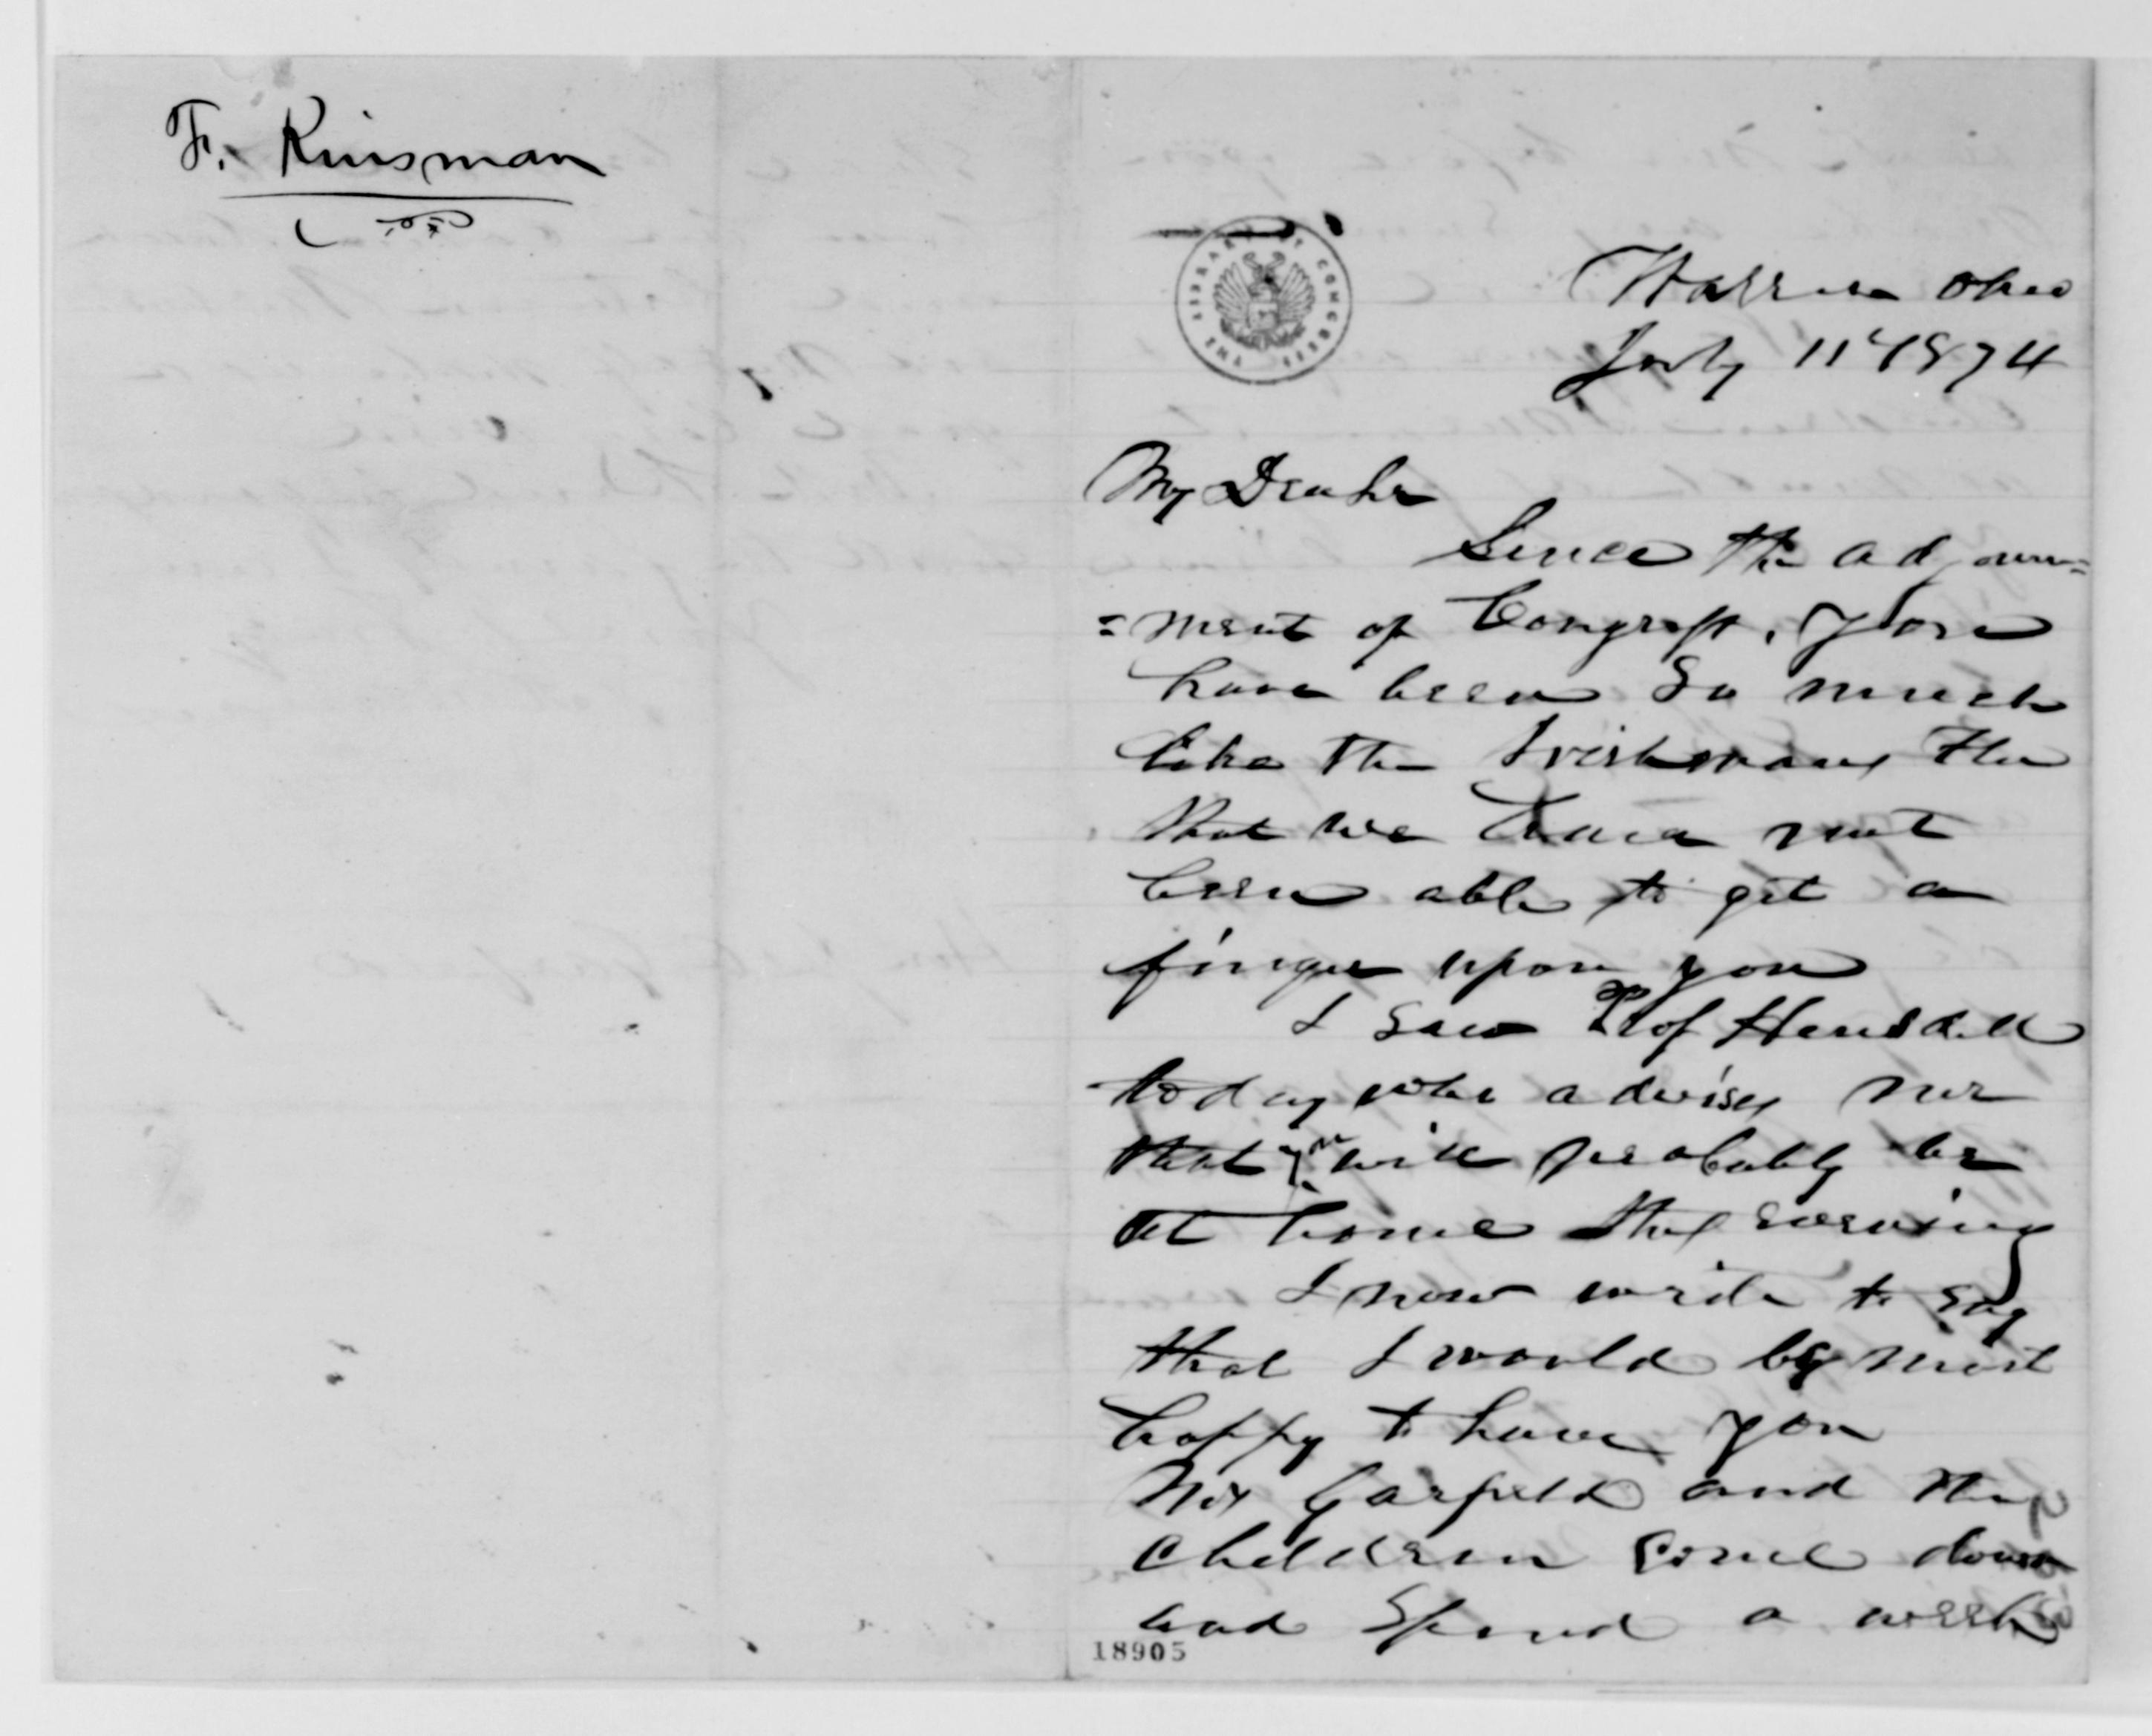 F. Kinsman
THE LIBRARY OF CONGRESS
Warren Ohio
July 11 1874
My Dear Sir
Since the adjourn=
=ment of Congress, you
have been so much
like the Irishmans flea
that we have not
been able to get a
finger upon you
I saw Prof Hinsdale
today who advises me
that you will probably be
at home this evening
I now write to say
that I would be most
happy to have you
Mrs Garfield and the
children come down
and spend a week
18905